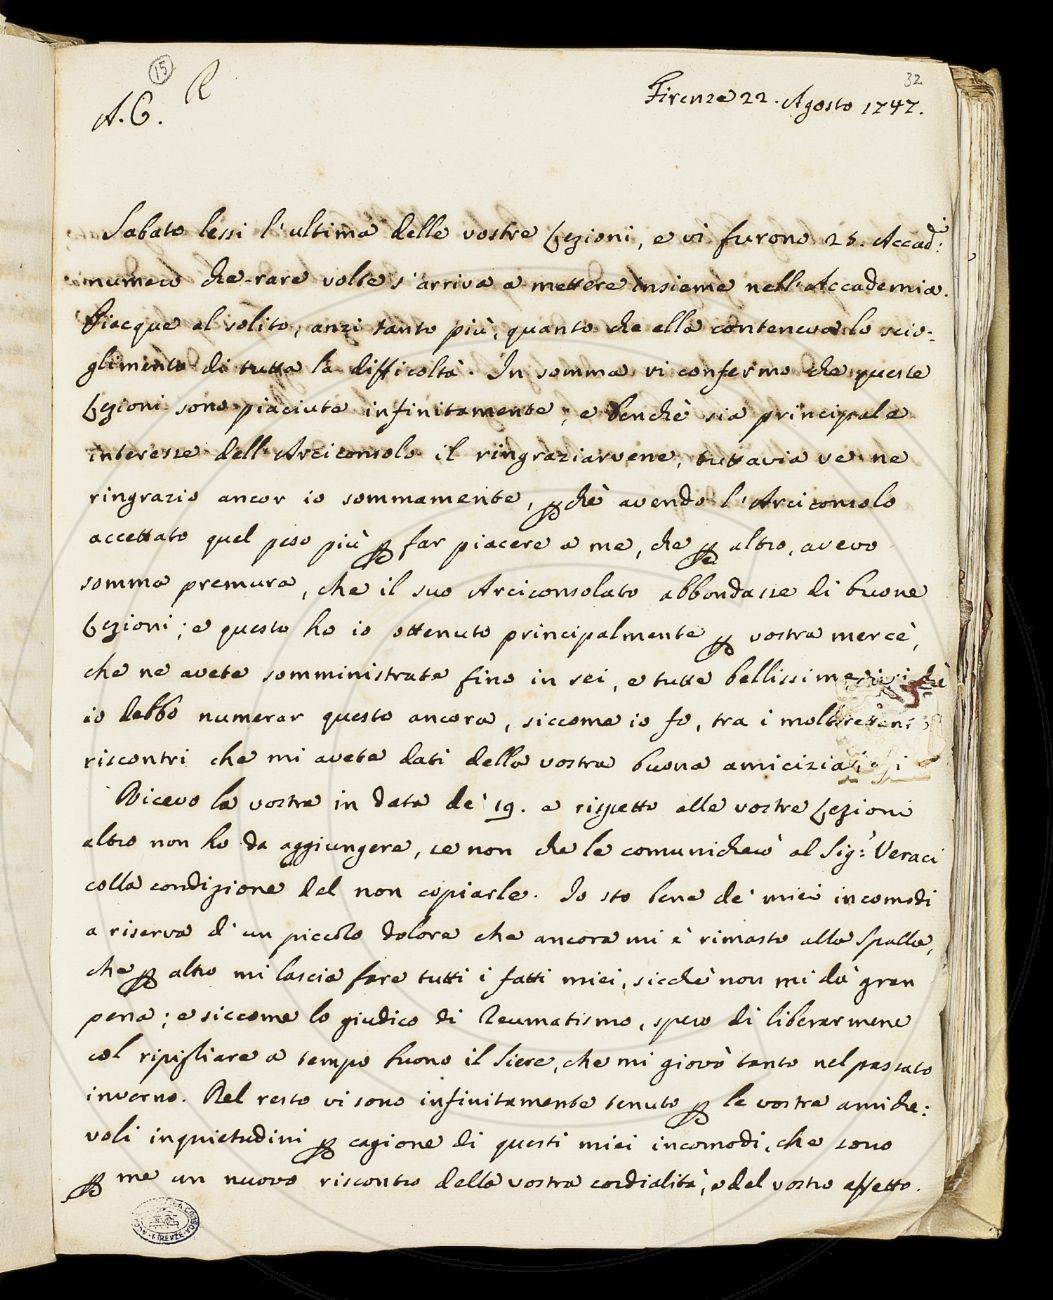 15
R
32
A. C.
Firenze 22. Agosto 1747.
Sabato lessi l'ultima delle vostre Lezioni, e vi furono 25. Accad:i
numero che rare volte s'arriva a mettere insieme nell'Accademia.
Piacque al solito, anzi tanto più, quanto che ella conteneva lo scio-
glimento di tutta la difficoltà. In somma vi confermo che queste
Lezioni sono piaciute infinitamente, e benchè sia principale
interesse dell'Arciconsolo il ringraziarvene, tuttavia ve ne
ringrazio ancor io sommamente, pchè avendo l'Arciconsolo
accettato quel peso più p far piacere a me, che p altro, avevo
somma premura, che il suo Arciconsolato abbondasse di buone
Lezioni; e questo ho io ottenuto principalmente p vostra mercè,
che ne avete somministrate fino in sei, e tutte bellissime
io debbo numerar questo ancora, siccome io fo, tra i molti
riscontri che mi avete dati della vostra buona amicizia
Ricevo la vostra in data de' 19. e rispetto alle vostre Lezioni
altro non ho da aggiungere, se non che le comunicherò al Sig:r Veraci
colla condizione del non copiarle. Io sto bene de' miei incomodi
a riserva d'un piccolo dolore che ancora mi è rimasto alla Spalla,
che p altro mi lascia fare tutti i fatti miei, sicchè non mi dà gran
pena; e siccome lo giudico di Reumatismo, spero di liberarmene
col ripigliare a tempo buono il Siere, che mi giovò tanto nel passato
inverno. Del resto vi sono infinitamente tenuto p le vostre amiche-
voli inquietudini p cagione di questi miei incomodi, che sono
p me un nuovo riscontro della vostra cordialità, e del vostro affetto.